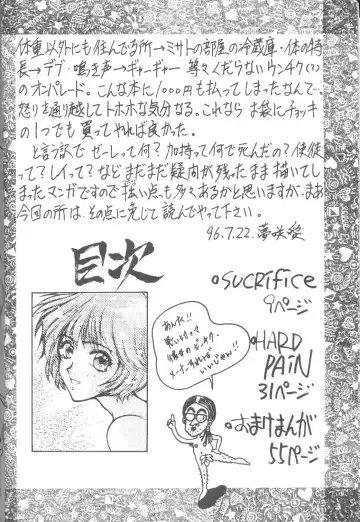 体重以外にも住んでる所→ミサトの部屋の冷蔵庫・体の特
長→デブ・鳴き声→ギャーギャー 等々くだらないウンチク(?)
のオンパレード。こんな本に1000円も払ってしまったなんて…
怒りを通り越してトホホな気分なる。これなら お袋にチョッキ
の1つでも 買ってやれば良かった。
と言う訳で ゼーレって何？加持って何で死んだの？使徒
って？レイって？など まだまだ疑問が残ったまま描いてし
まったマンガですので 描い点も多々あるかと思いますが、まあ
今回の所は、その点に免じて 読んでやって下さい。
96.7.22. 夢咲
目次
SUCRifice
9ページ
HARD
PAiN
31ページ
おまけまんが
55ページ
あんた!!
いいじゃん!!